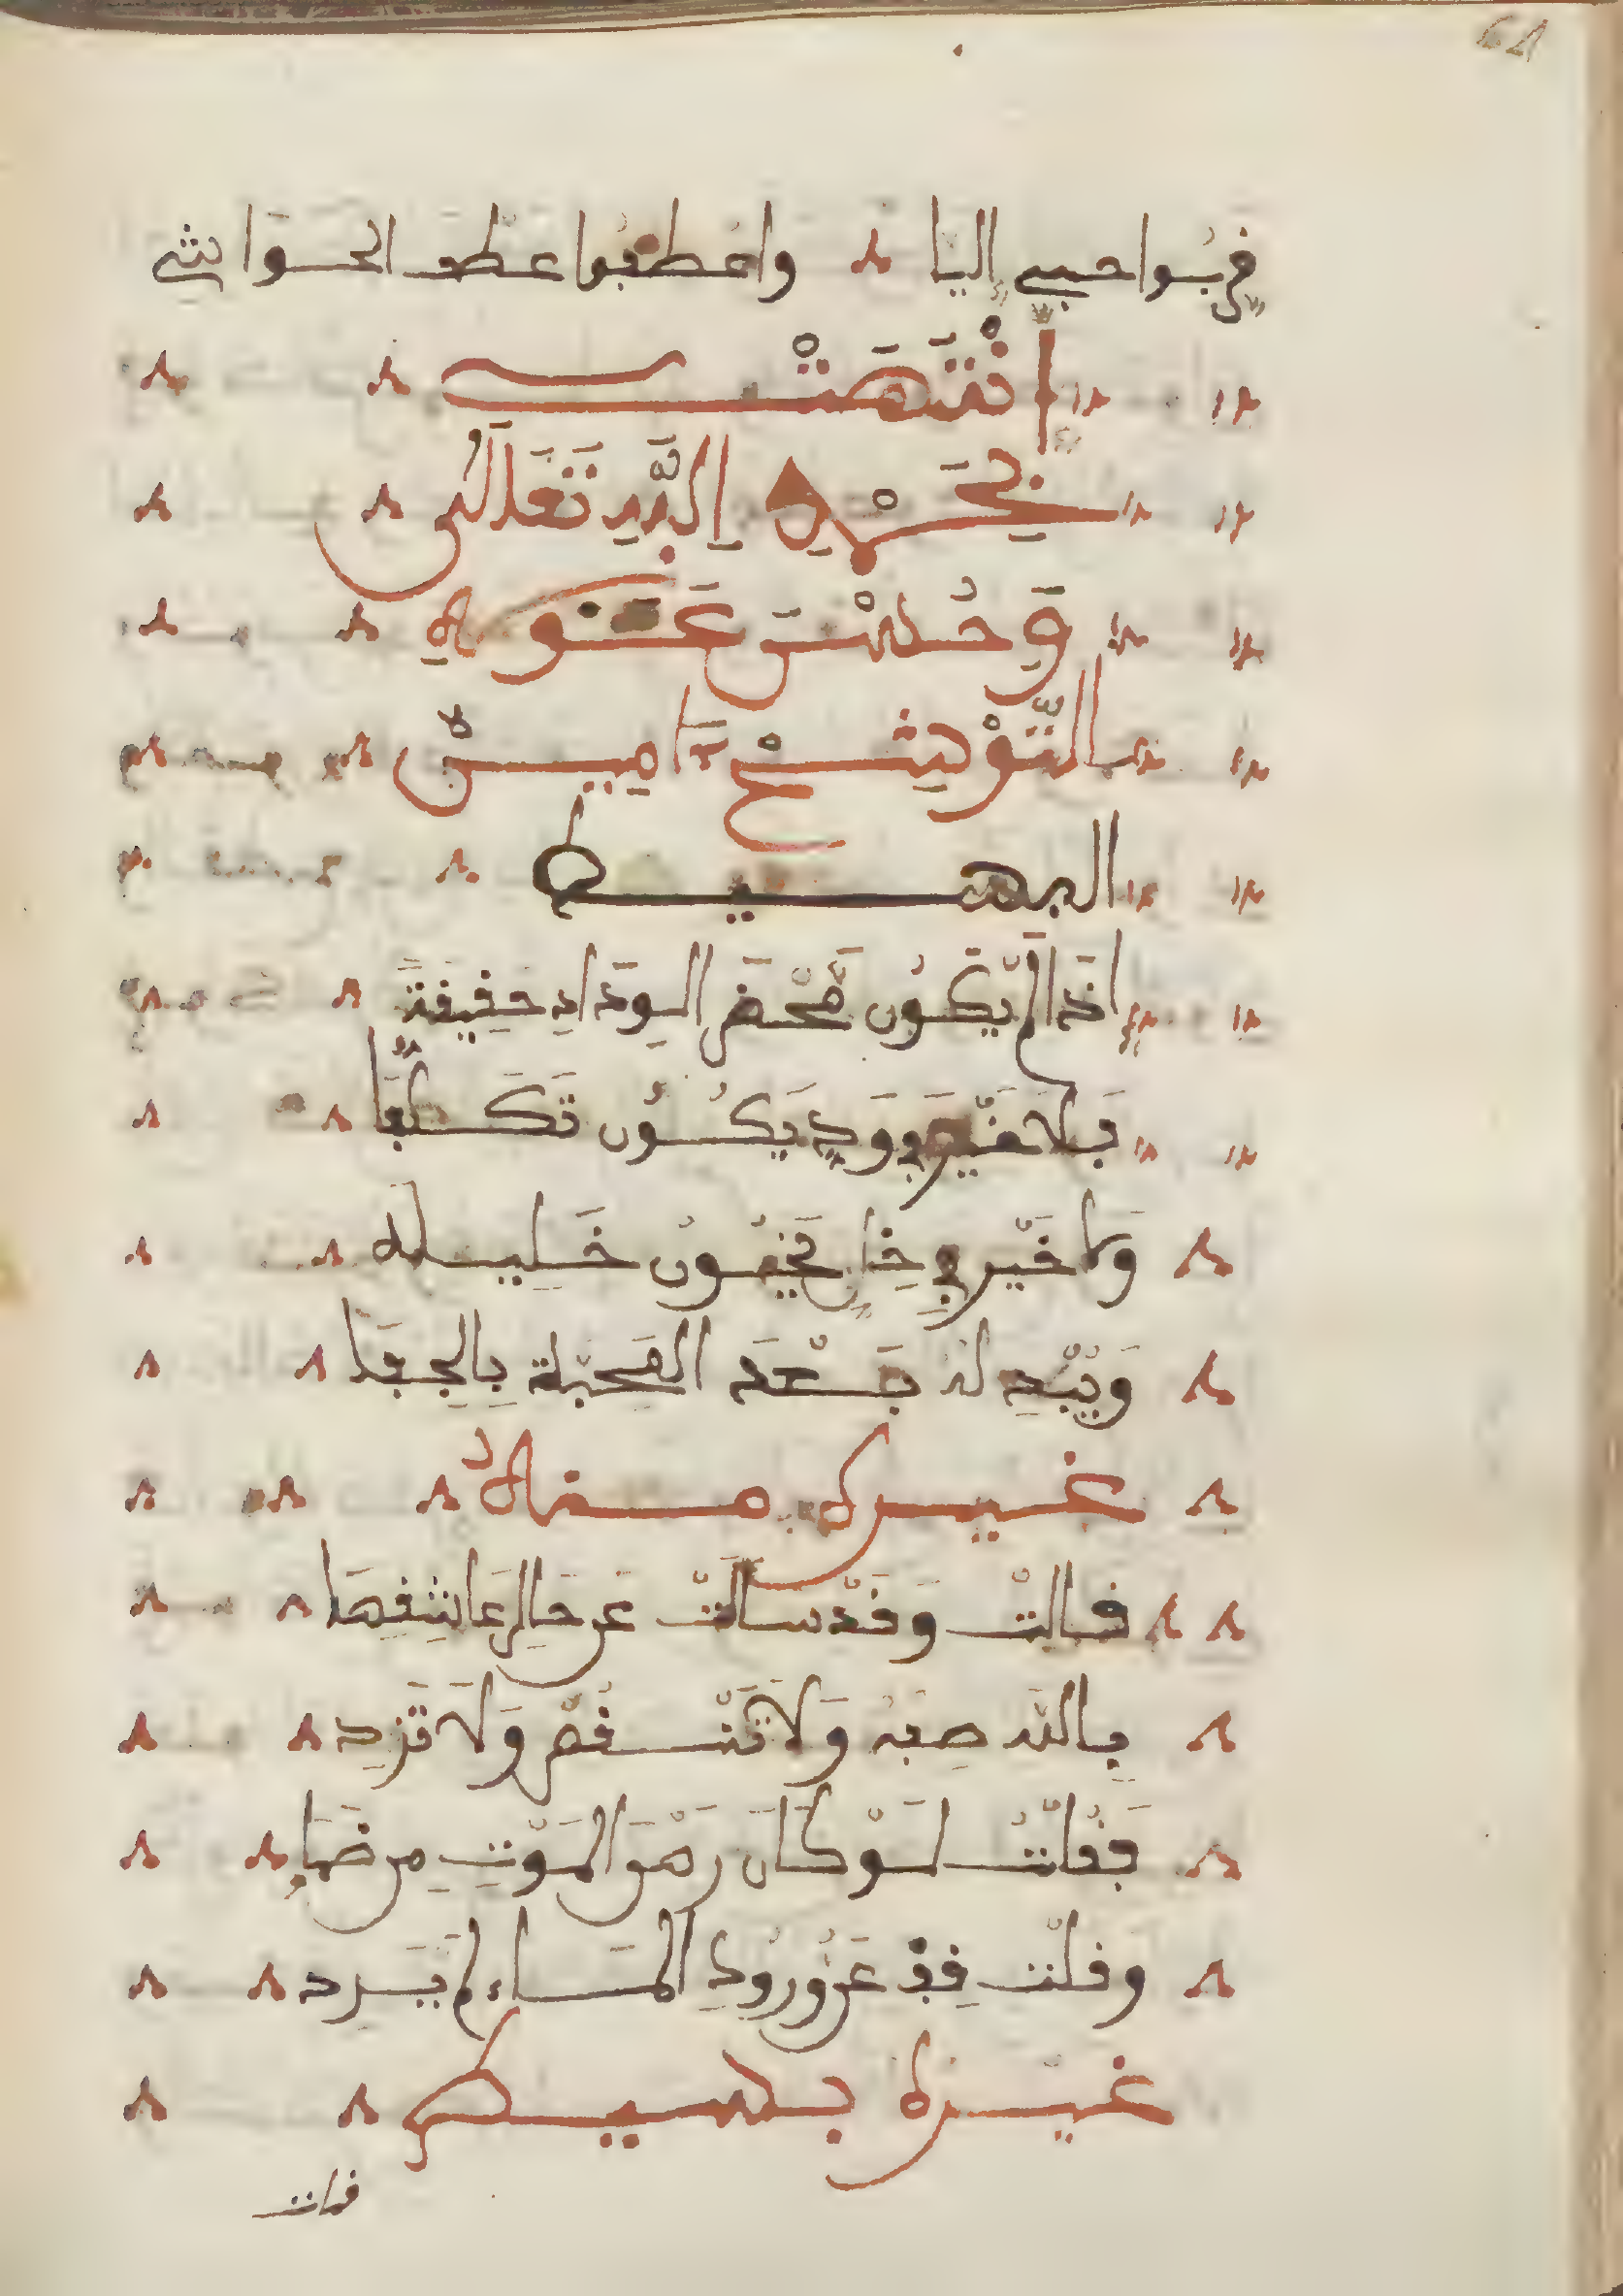 قربوا حبيبي إليا واعطفوا عطف الحواشي
انْتَهَتْ
بِحَمْدِ اِللَّهِ تَعَلَالَى
وَحُسْنِ عَوْنِهِ
التَّوْشِيحْ ءامِينْ
البسيط
اذَا لَمْ يَكُون مَحْضَ الوِدَادِ حَقِيقَةً
فَلَا خَيْرَ فِي وَدٍّ يَكُون تَكَلُّفَا
وَلَا خَيْر فِي خِلٍّ يَخُون خَلِيلَهُ
وَيُبْدِ لهُ بَعْدَ المَحَبَّة بِالجَفَا
غيره منهُ
قالتْ وَقَدْ سَالَتْ عَن حَالِ عَاشِقِهَا
بِاللَّه صِفهُ وَلَا تَنْقُصْ وَلَا تَزِد
فَقُلتُ لَوْ كَانَ رَهْنَ المَوْتِ مِن ظَمَإٍ
وقلْت قِفْ عَن وُرُودِ المَاءِ لَم يَرِد
غيره بسيط
قالت